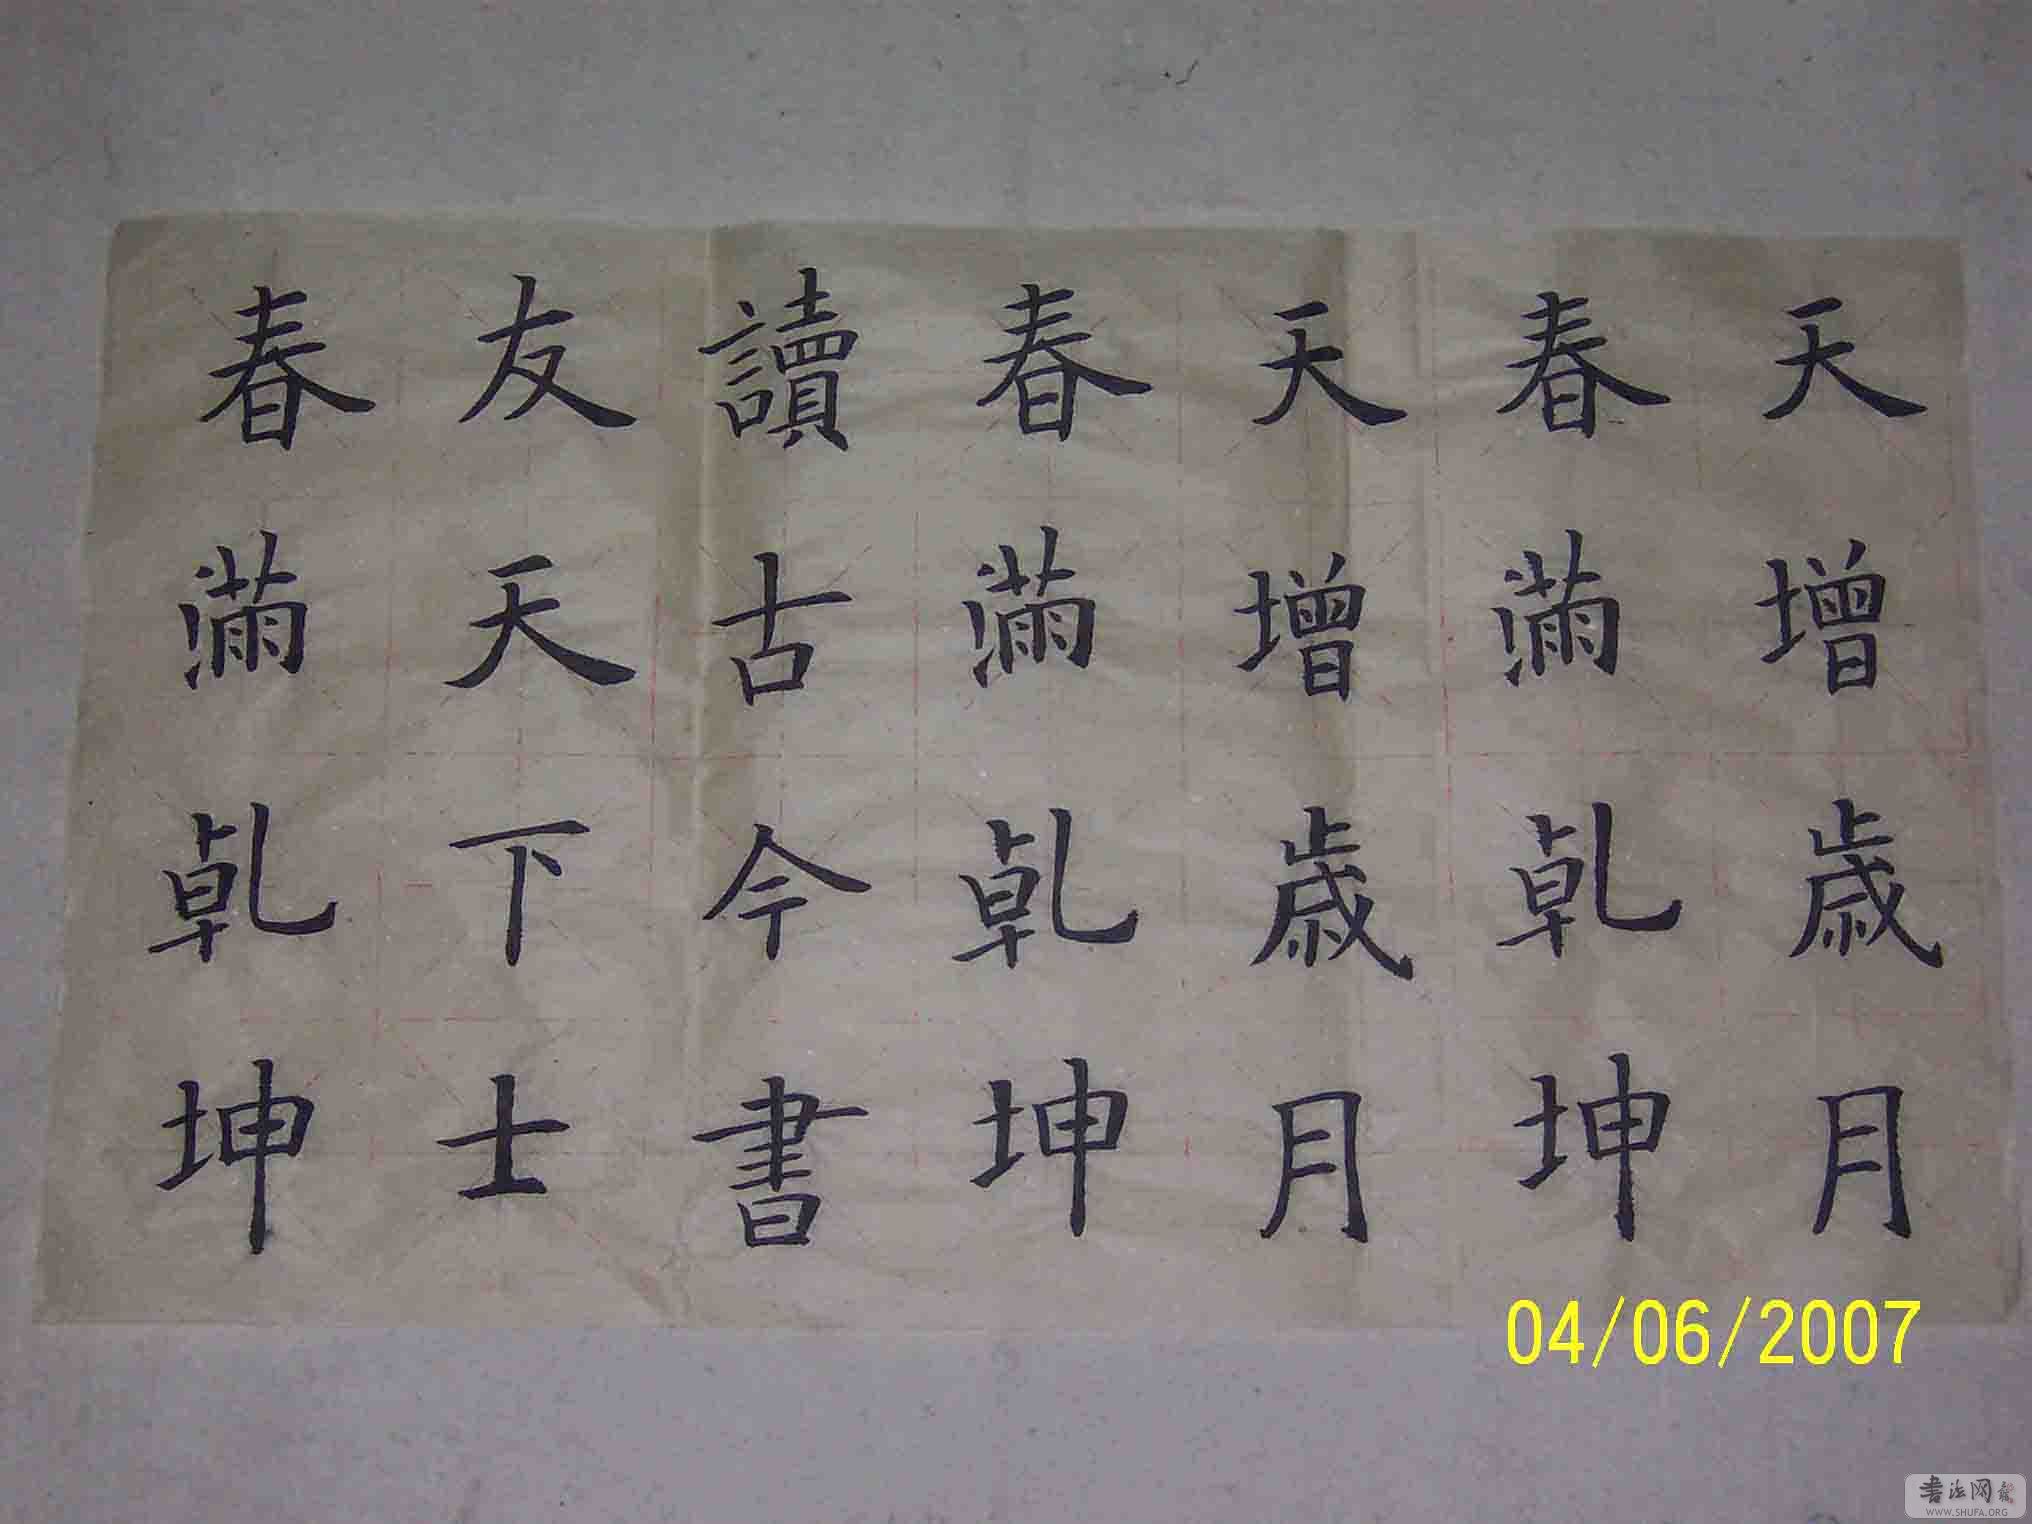 天增歲月
春滿乾坤
天增歲月
春滿乾坤
讀古今書
友天下士
春滿乾坤
04/06/2007
書法网
WWW.SHUFA.ORG